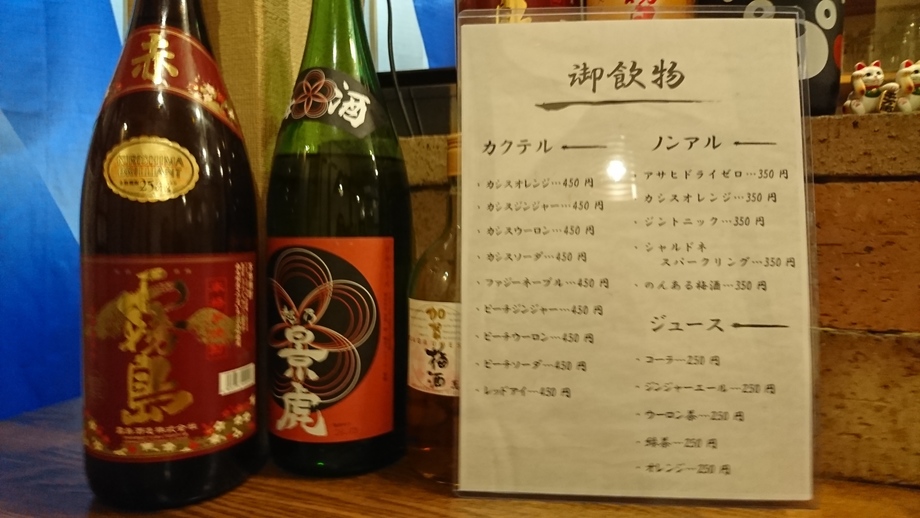 赤
霧島
酒
越乃
景虎
加賀
梅酒
御飲物
カクテル
・カシスオレンジ…450円
・カシスジンジャー…450円
・カシスウーロン…450円
・カシスソーダ…450円
・ファジーネーブル…450円
・ピーチジンジャー…450円
・ピーチウーロン…450円
・ピーチソーダ…450円
・レッドアイ…450円
ノンアル
・アサヒドライゼロ…350円
カシスオレンジ…350円
・ジントニック…350円
・シャルドネ
スパークリング…350円
・のんある梅酒…350円
ジュース
・コーラ…250円
・ジンジャーエール…250円
・ウーロン茶…250円
・緑茶…250円
・オレンジ…250円